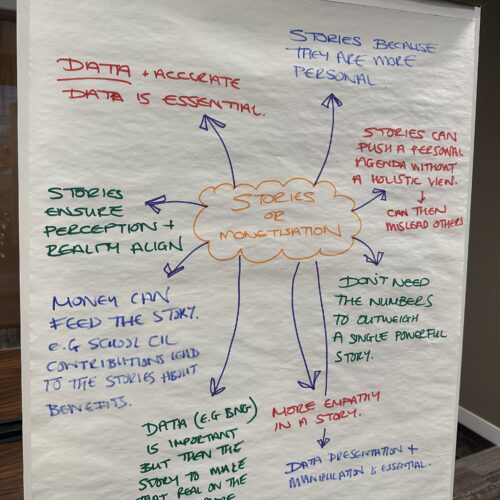 STORIES BECAUSE
THEY ARE MORE
PERSONAL
DATA + ACCURATE
DATA IS ESSENTIAL.
STORIES CAN
PUSH A PERSONAL
AGENDA WITHOUT
A HOLISTIC VIEW.
CAN THEN
MISLEAD OTHERS
STORIES
OR
MONETISATION
STORIES
ENSURE
PERCEPTION +
REALITY ALIGN
DON'T NEED
THE NUMBERS
TO OUTWEIGH
A SINGLE POWERFUL
STORY.
MONEY CAN
FEED THE STORY.
E.G SCHOOL CIL
CONTRIBUTIONS LEAD
TO THE STORIES ABOUT
BENEFITS.
DATA (E.G BNG)
IS IMPORTANT
BUT THEN THE
STORY TO MAKE
THAT REAL ON THE
MORE EMPATHY
IN A STORY.
DATA PRESENTATION +
MANIPULATION IS ESSENTIAL.